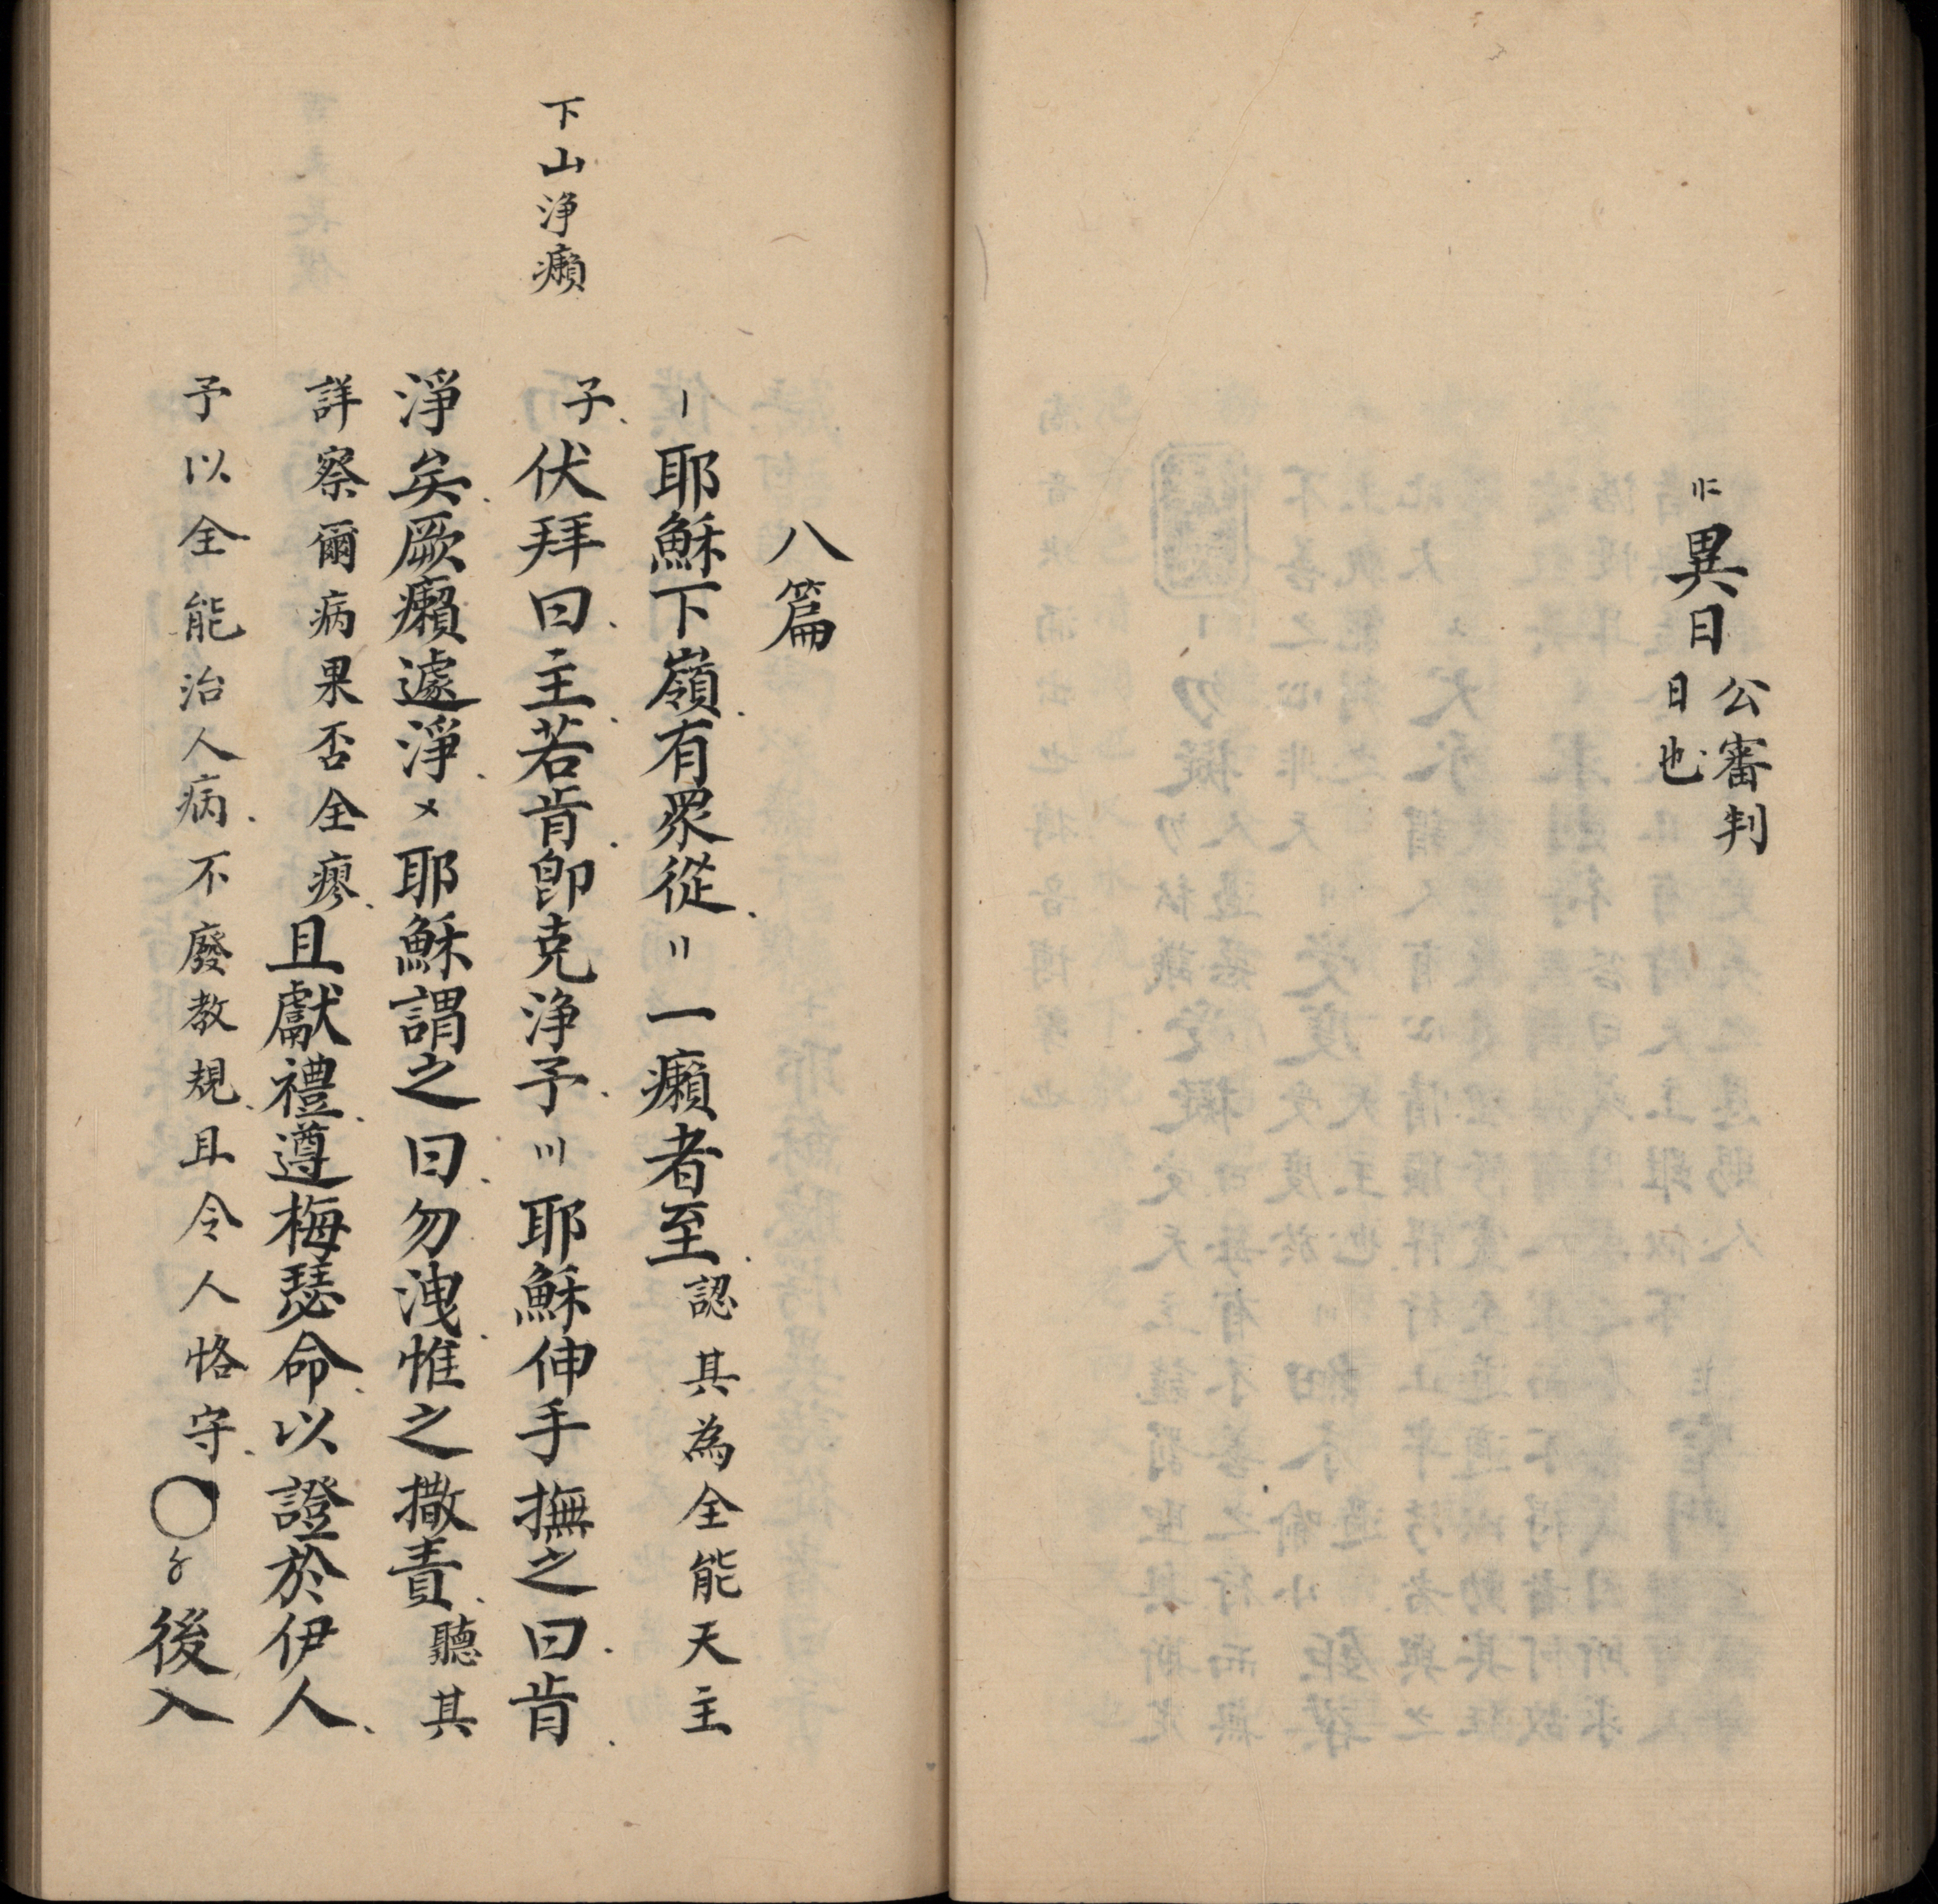 〢二異日公審判
日也
八篇
〡耶穌下嶺有眾從〢一癩者至認其為全能天主
下山淨癩
子伏拜曰主若肯即克淨予〣耶穌伸手撫之曰肯
淨矣厥癩遽淨〤耶穌謂之曰勿洩惟之撒責聽其
詳察爾病果否全瘳且獻禮遵梅瑟命以證於伊人
予以全能治人病不廢教規且令人恪守〇〥後入